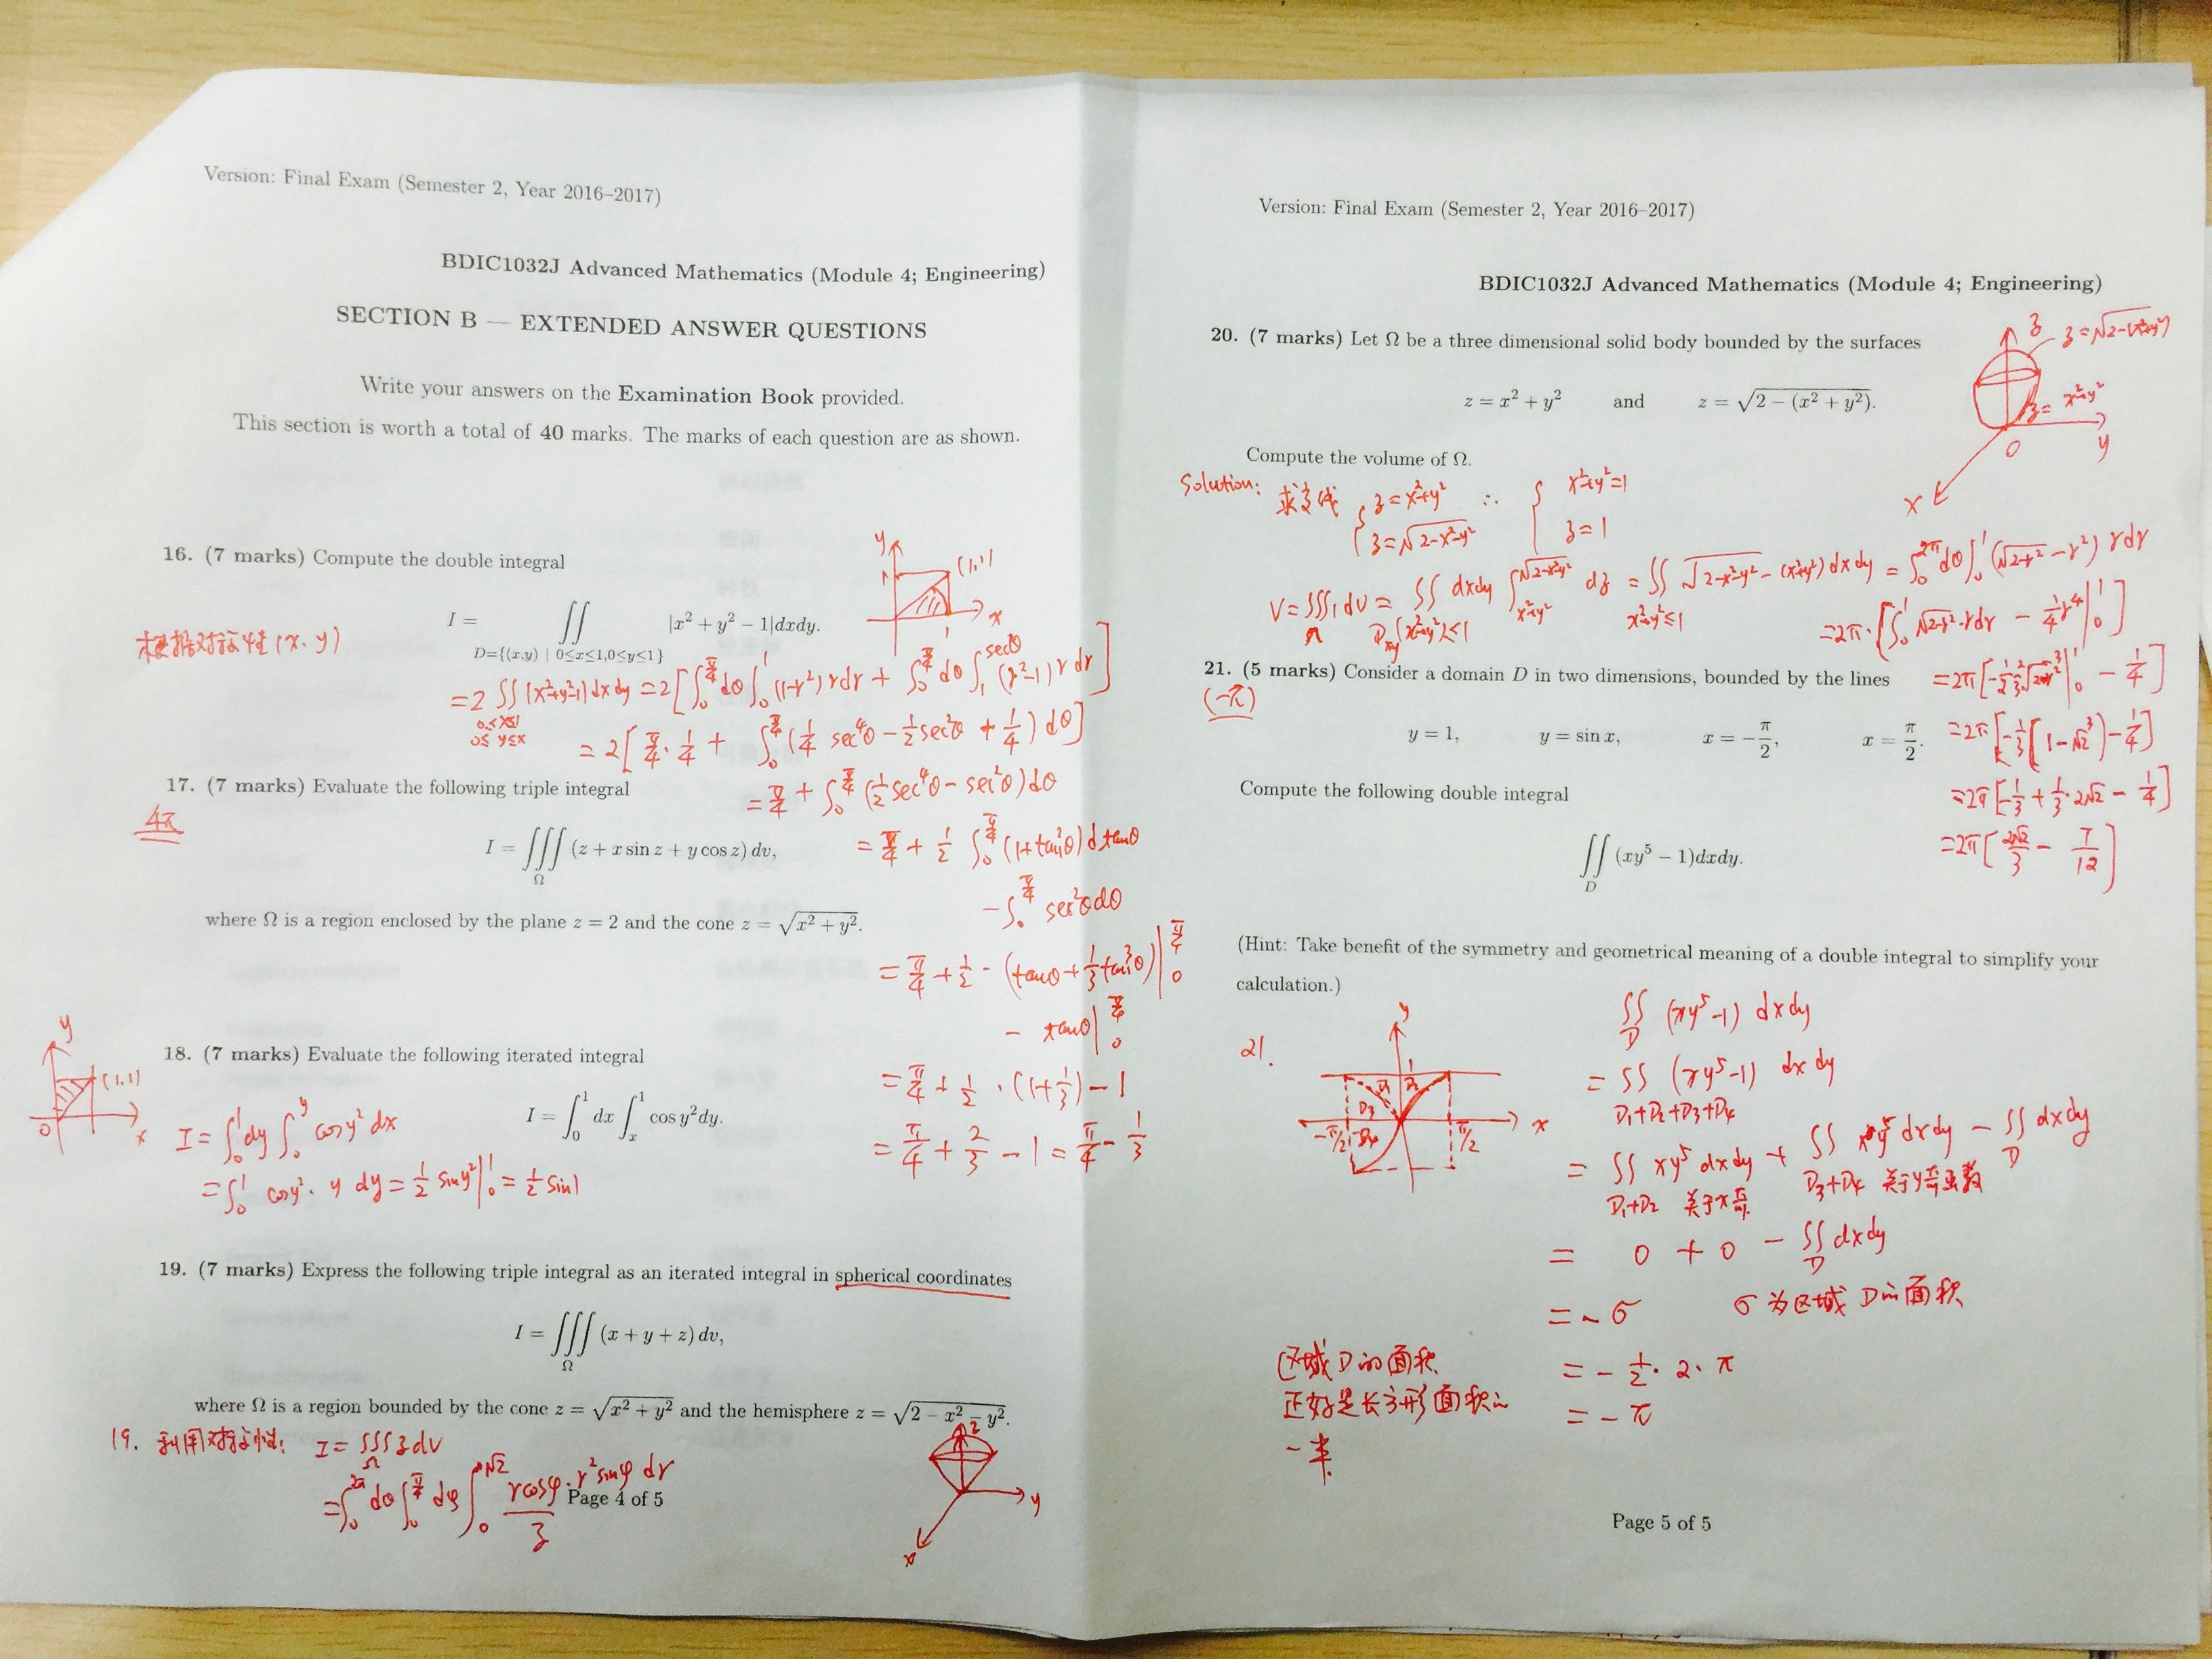 Version: Final Exam (Semester 2, Year 2016–2017)
BDIC1032J Advanced Mathematics (Module 4; Engineering)
SECTION B — EXTENDED ANSWER QUESTIONS
Write your answers on the Examination Book provided.
This section is worth a total of 40 marks. The marks of each question are as shown.
16. (7 marks) Compute the double integral
I = ∬ |x² + y² − 1|dxdy.
D={(x,y) | 0≤x≤1,0≤y≤1}
根据对称性 (x、y)
y
1
(1,1)
x
1
= 2 ∬ |x²+y²-1| dxdy = 2[∫₀^{π/4} dθ ∫₀¹ (1-r²) r dr + ∫₀^{π/4} dθ ∫₁^{secθ} (r²-1) r dr]
0≤x≤1
0≤y≤x
= 2[π/4 · 1/4 + ∫₀^{π/4} (1/4 sec⁴θ - 1/2 sec²θ + 1/4) dθ]
= π/4 + ∫₀^{π/4} (1/2 sec⁴θ - sec²θ) dθ
= π/4 + 1/2 ∫₀^{π/4} (1+tan²θ) d tanθ
- ∫₀^{π/4} sec²θ dθ
= π/4 + 1/2 · (tanθ + 1/3 tan³θ) |₀^{π/4}
- tanθ |₀^{π/4}
= π/4 + 1/2 · (1+1/3) - 1
= π/4 + 2/3 - 1 = π/4 - 1/3
17. (7 marks) Evaluate the following triple integral
4π
I = ∭ (z + x sin z + y cos z) dv,
Ω
where Ω is a region enclosed by the plane z = 2 and the cone z = √(x² + y²).
18. (7 marks) Evaluate the following iterated integral
I = ∫₀¹ dx ∫ₓ¹ cos y² dy.
y
(1,1)
0
x
I = ∫₀¹ dy ∫₀^y cos y² dx
= ∫₀¹ cos y² · y dy = 1/2 sin y² |₀¹ = 1/2 sin1
19. (7 marks) Express the following triple integral as an iterated integral in spherical coordinates
I = ∭ (x + y + z) dv,
Ω
where Ω is a region bounded by the cone z = √(x² + y²) and the hemisphere z = √(2 − x² − y²).
19. 利用对称性: I = ∭ z dv
Ω
= ∫₀^{2π} dθ ∫₀^{π/4} dφ ∫₀^{√2} r cosφ · r² sinφ dr
z
z
y
x
Page 4 of 5
Version: Final Exam (Semester 2, Year 2016–2017)
BDIC1032J Advanced Mathematics (Module 4; Engineering)
20. (7 marks) Let Ω be a three dimensional solid body bounded by the surfaces
z = x² + y² and z = √(2 − (x² + y²)).
Compute the volume of Ω.
z
z = √(2-(x²+y²))
z = x²+y²
0
y
x
Solution: 求交线 { z = x²+y² ∴ { x²+y² = 1
z = √(2-x²-y²) z = 1
V = ∭ 1 dv = ∬ dxdy ∫_{x²+y²}^{√(2-x²-y²)} dz = ∬ √(2-x²-y²) - (x²+y²) dxdy = ∫₀^{2π} dθ ∫₀¹ (√(2-r²) - r²) r dr
Ω D_{xy}(x²+y²)≤1 x²+y²≤1
= 2π · [∫₀¹ √(2-r²) · r dr - 1/4 r⁴ |₀¹]
= 2π [-1/2 · 2/3 √(2-r²)³ |₀¹ - 1/4]
= 2π [-1/3 (1 - √2³) - 1/4]
= 2π [-1/3 + 1/3 · 2√2 - 1/4]
= 2π [2√2/3 - 7/12]
21. (5 marks) Consider a domain D in two dimensions, bounded by the lines
(-π)
y = 1, y = sin x, x = −π/2, x = π/2.
Compute the following double integral
∬ (xy⁵ − 1)dxdy.
D
(Hint: Take benefit of the symmetry and geometrical meaning of a double integral to simplify your
calculation.)
21.
y
1
D₁ D₂
D₃
D₄
-π/2
π/2
x
∬ (xy⁵-1) dxdy
D
= ∬ (xy⁵-1) dxdy
D₁+D₂+D₃+D₄
= ∬ xy⁵ dxdy + ∬ xy⁵ dxdy - ∬ dxdy
D₁+D₂ 关于x奇. D₃+D₄ 关于y奇函数 D
= 0 + 0 - ∬ dxdy
D
= - σ σ 为区域 D的面积
= - 1/2 · 2 · π
= - π
区域D的面积
正好是长方形面积的
一半.
Page 5 of 5